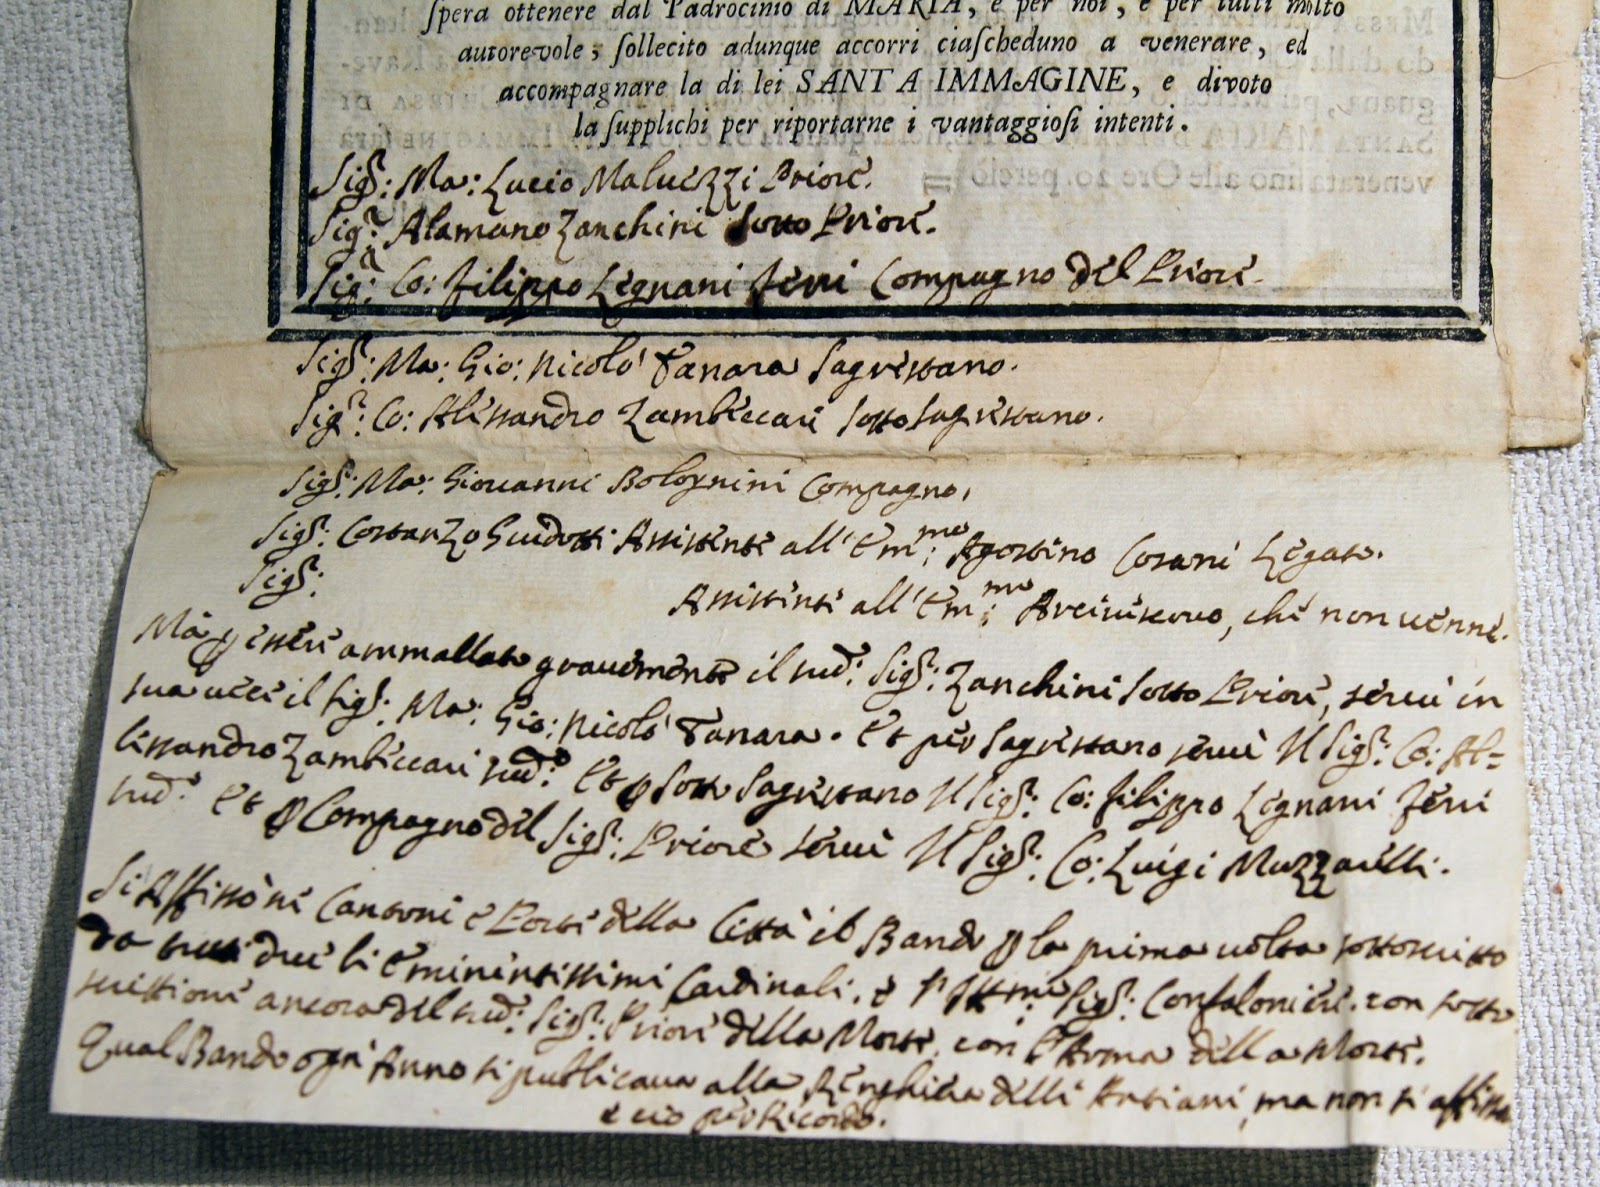 spera ottenere dal Padrocinio di MARIA, e per noi, e per tutti molto
autorevole; sollecito adunque accorri ciascheduno a venerare, ed
accompagnare la di lei SANTA IMMAGINE, e divoto
la supplichi per riportarne i vantaggiosi intenti.
Sigr: Ma: Lucio Maluezzi Priore.
Sigr: Alamano Zanchini Sotto Priore.
Sigr: Co: Filippo Legnani Ferri Compagno del Priore.
Sigr: Ma: Gio: Nicolò Tanara Sagrestano.
Sigr: Co: Alessandro Zambeccari Sotto Sagrestano.
Sigr: Ma: Giouanni Bolognini Compagno,
Sigr: Costanzo Guidotti Assistente all'Emmo: Agostino Cosani Legato.
Sigr:
Assistente all'Emmo: Arciuescouo, che non uenne.
Mà p essere ammallato grauemente il sudo: Sigr: Zanchini Sotto Priore, seruì in
sua uece il Sigr: Ma: Gio: Nicolò Tanara. Et per Sagrestano seruì Il Sigr: Co: Al=
lissandro Zambeccari sudo: Et p Sotto Sagrestano Il Sigr: Co: Filippo Legnani Ferri
sudo: Et p Compagno del Sigr: Priore seruì Il Sigr: Co: Luigi Muzzarelli.
Si Affissò ne Cantoni e Porte della Città il Bando p la prima uolta sottoscritto
da tutti due li Eminentissimi Cardinali, e Sigr: Confaloniere. con sotto
scrittione ancora del sudo: Sigr: Priore della Morte, con l'Arma della Morte.
Qual Bando ogn'Anno si publicaua alla Renghiera delli Antiani, ma non si affissa
e ciò per Ricordo.